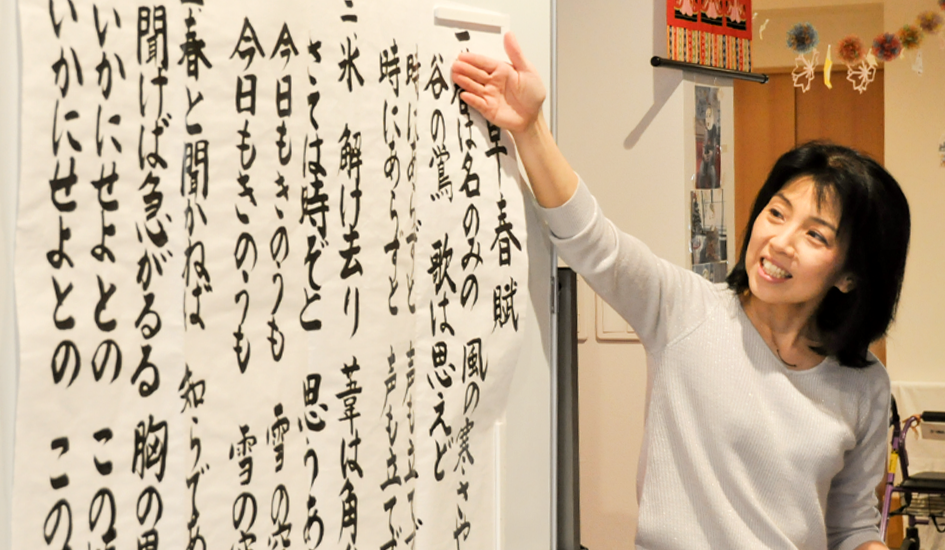 早春賦
春は名のみの 風の寒さや
谷の鶯 歌は思えど
時にあらずと 声も立てず
時にあらずと 声も立てず
二、氷 解け去り 葦は角
さては時ぞと 思うあ
今日もきのうも 雪の空
今日もきのうも 雪の空
春と聞かねば 知らであ
聞けば急がるる 胸の思
いかにせよとの この
いかにせよとの この